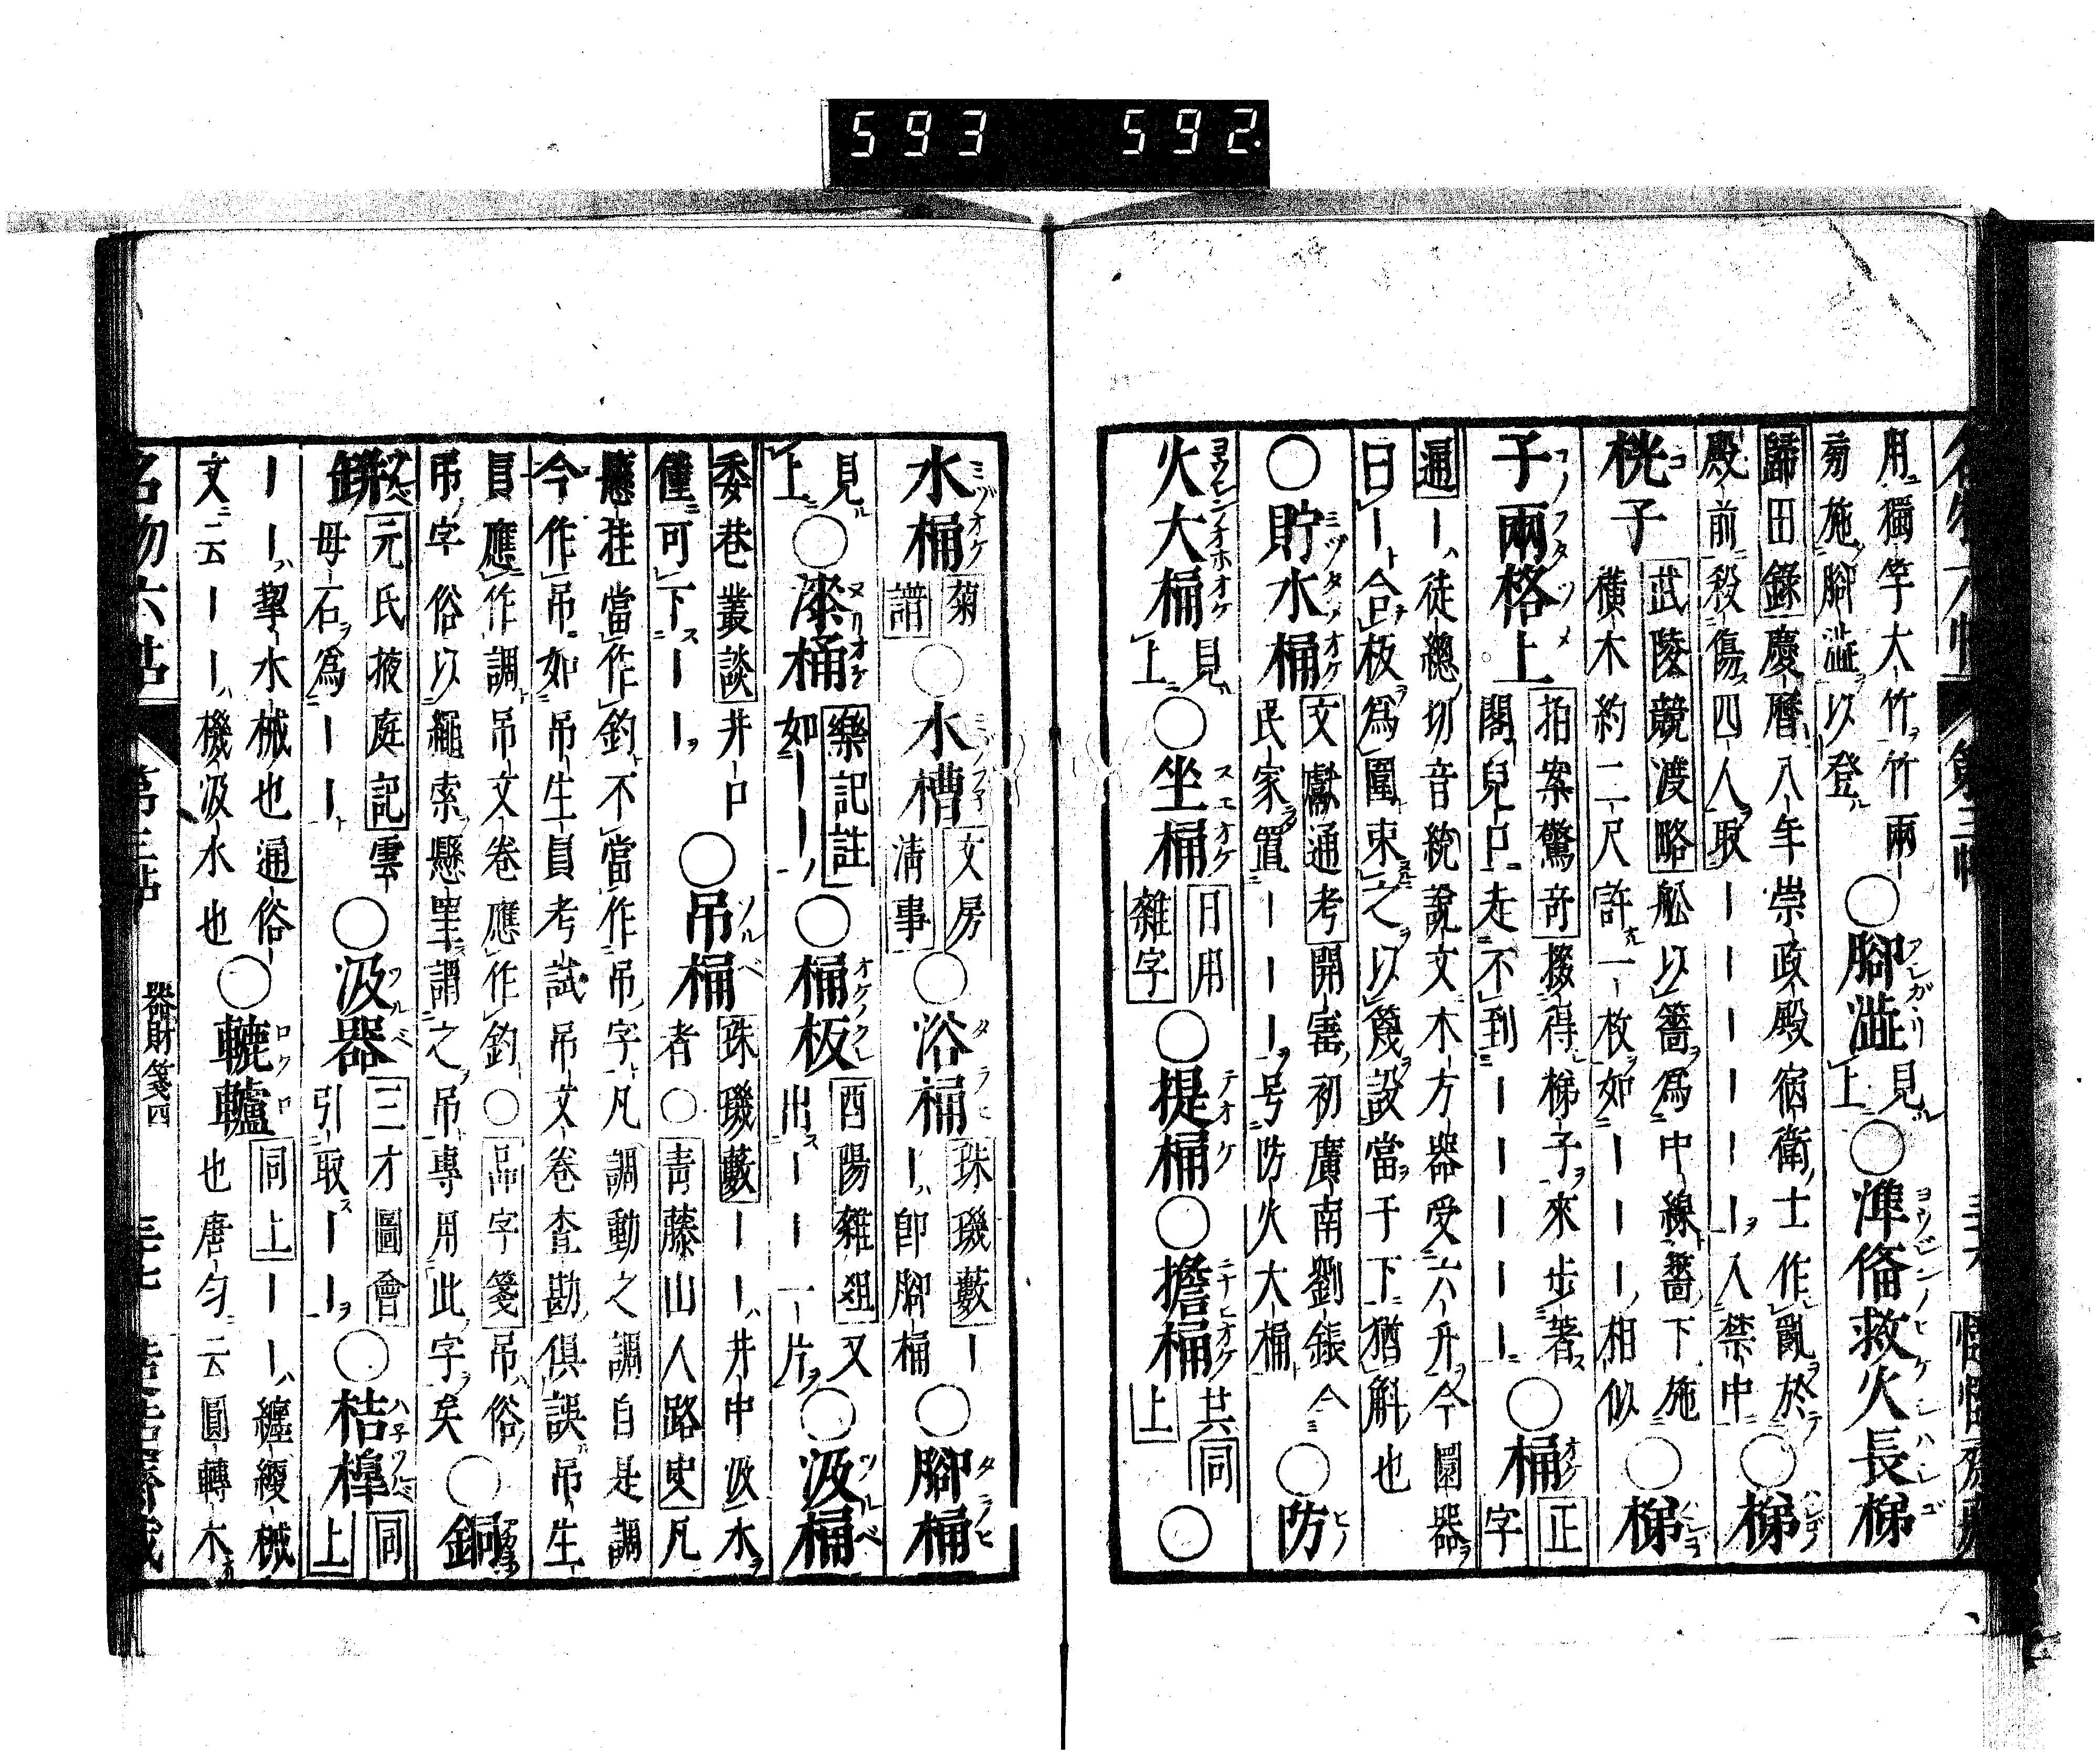 593 592
用獨竿大竹竹兩
旁施脚澁以登
○脚澁見上○準備救火長梯
歸田錄慶曆八年崇政殿宿衛士作亂於
殿前殺傷四人取ーーーーー入禁中
○梯
桄子
武陵競渡略舩以簥爲中線下施
橫木約二尺許一枚如ーー相似
○梯
子兩格上
拍案驚奇掇得梯子來步著
閣兒口走不到ーーーーー
○桶
正字
通ー徒總切音統說文木方器受六升今圓器
曰ー合板爲圍束之以篾設當于下猶斛也
○貯水桶
文獻通考開寶初廣南劉鋹令
民家置ーーー号防火大桶
○防
火大桶見上○坐桶日用雜字○提桶○擔桶共同上○
水桶菊譜○水槽文房清事○浴桶珠璣藪ーー卽脚桶○脚桶
見上○漆桶樂記註如ーー○桶板酉陽雜俎又出ーー一片○汲桶
委巷叢談井口
僅可下ーー
○吊桶
珠璣藪ーー井中汲水
者○靑藤山人路史凡
懸挂當作釣不當作吊字凡調動之調自是調
今作吊如吊生員考試吊文卷査勘俱誤吊生
員應作調吊文卷應作釣○品字箋吊俗
吊字俗以繩索懸罣謂之吊專用此字矣
○銅
缾
元氏掖庭記雲
母石爲ーー
○汲器
三才圖會
引取ーー
○桔槹同上
ーー挈水械也通俗
文云ーー機汲水也
○轆轤
同上ーー纏綆械
也唐勻云圓轉木
名物六帖 第三帖 器財箋四